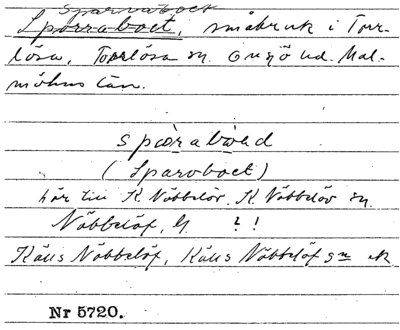 Sparvaboet
Sporraboet, småbruk i Torr-
lösa, Torrlösa sn. Onsjö hd. Mal-
möhus län.
spɷ̀rabòəd
(Sparvboet)
hör till K Nöbbelöv. K. Nöbbelöv sn.
Nöbbelöf, G ? !
Källs Nöbbelöf, Källs Nöbbelöf sn
Nr 5720.